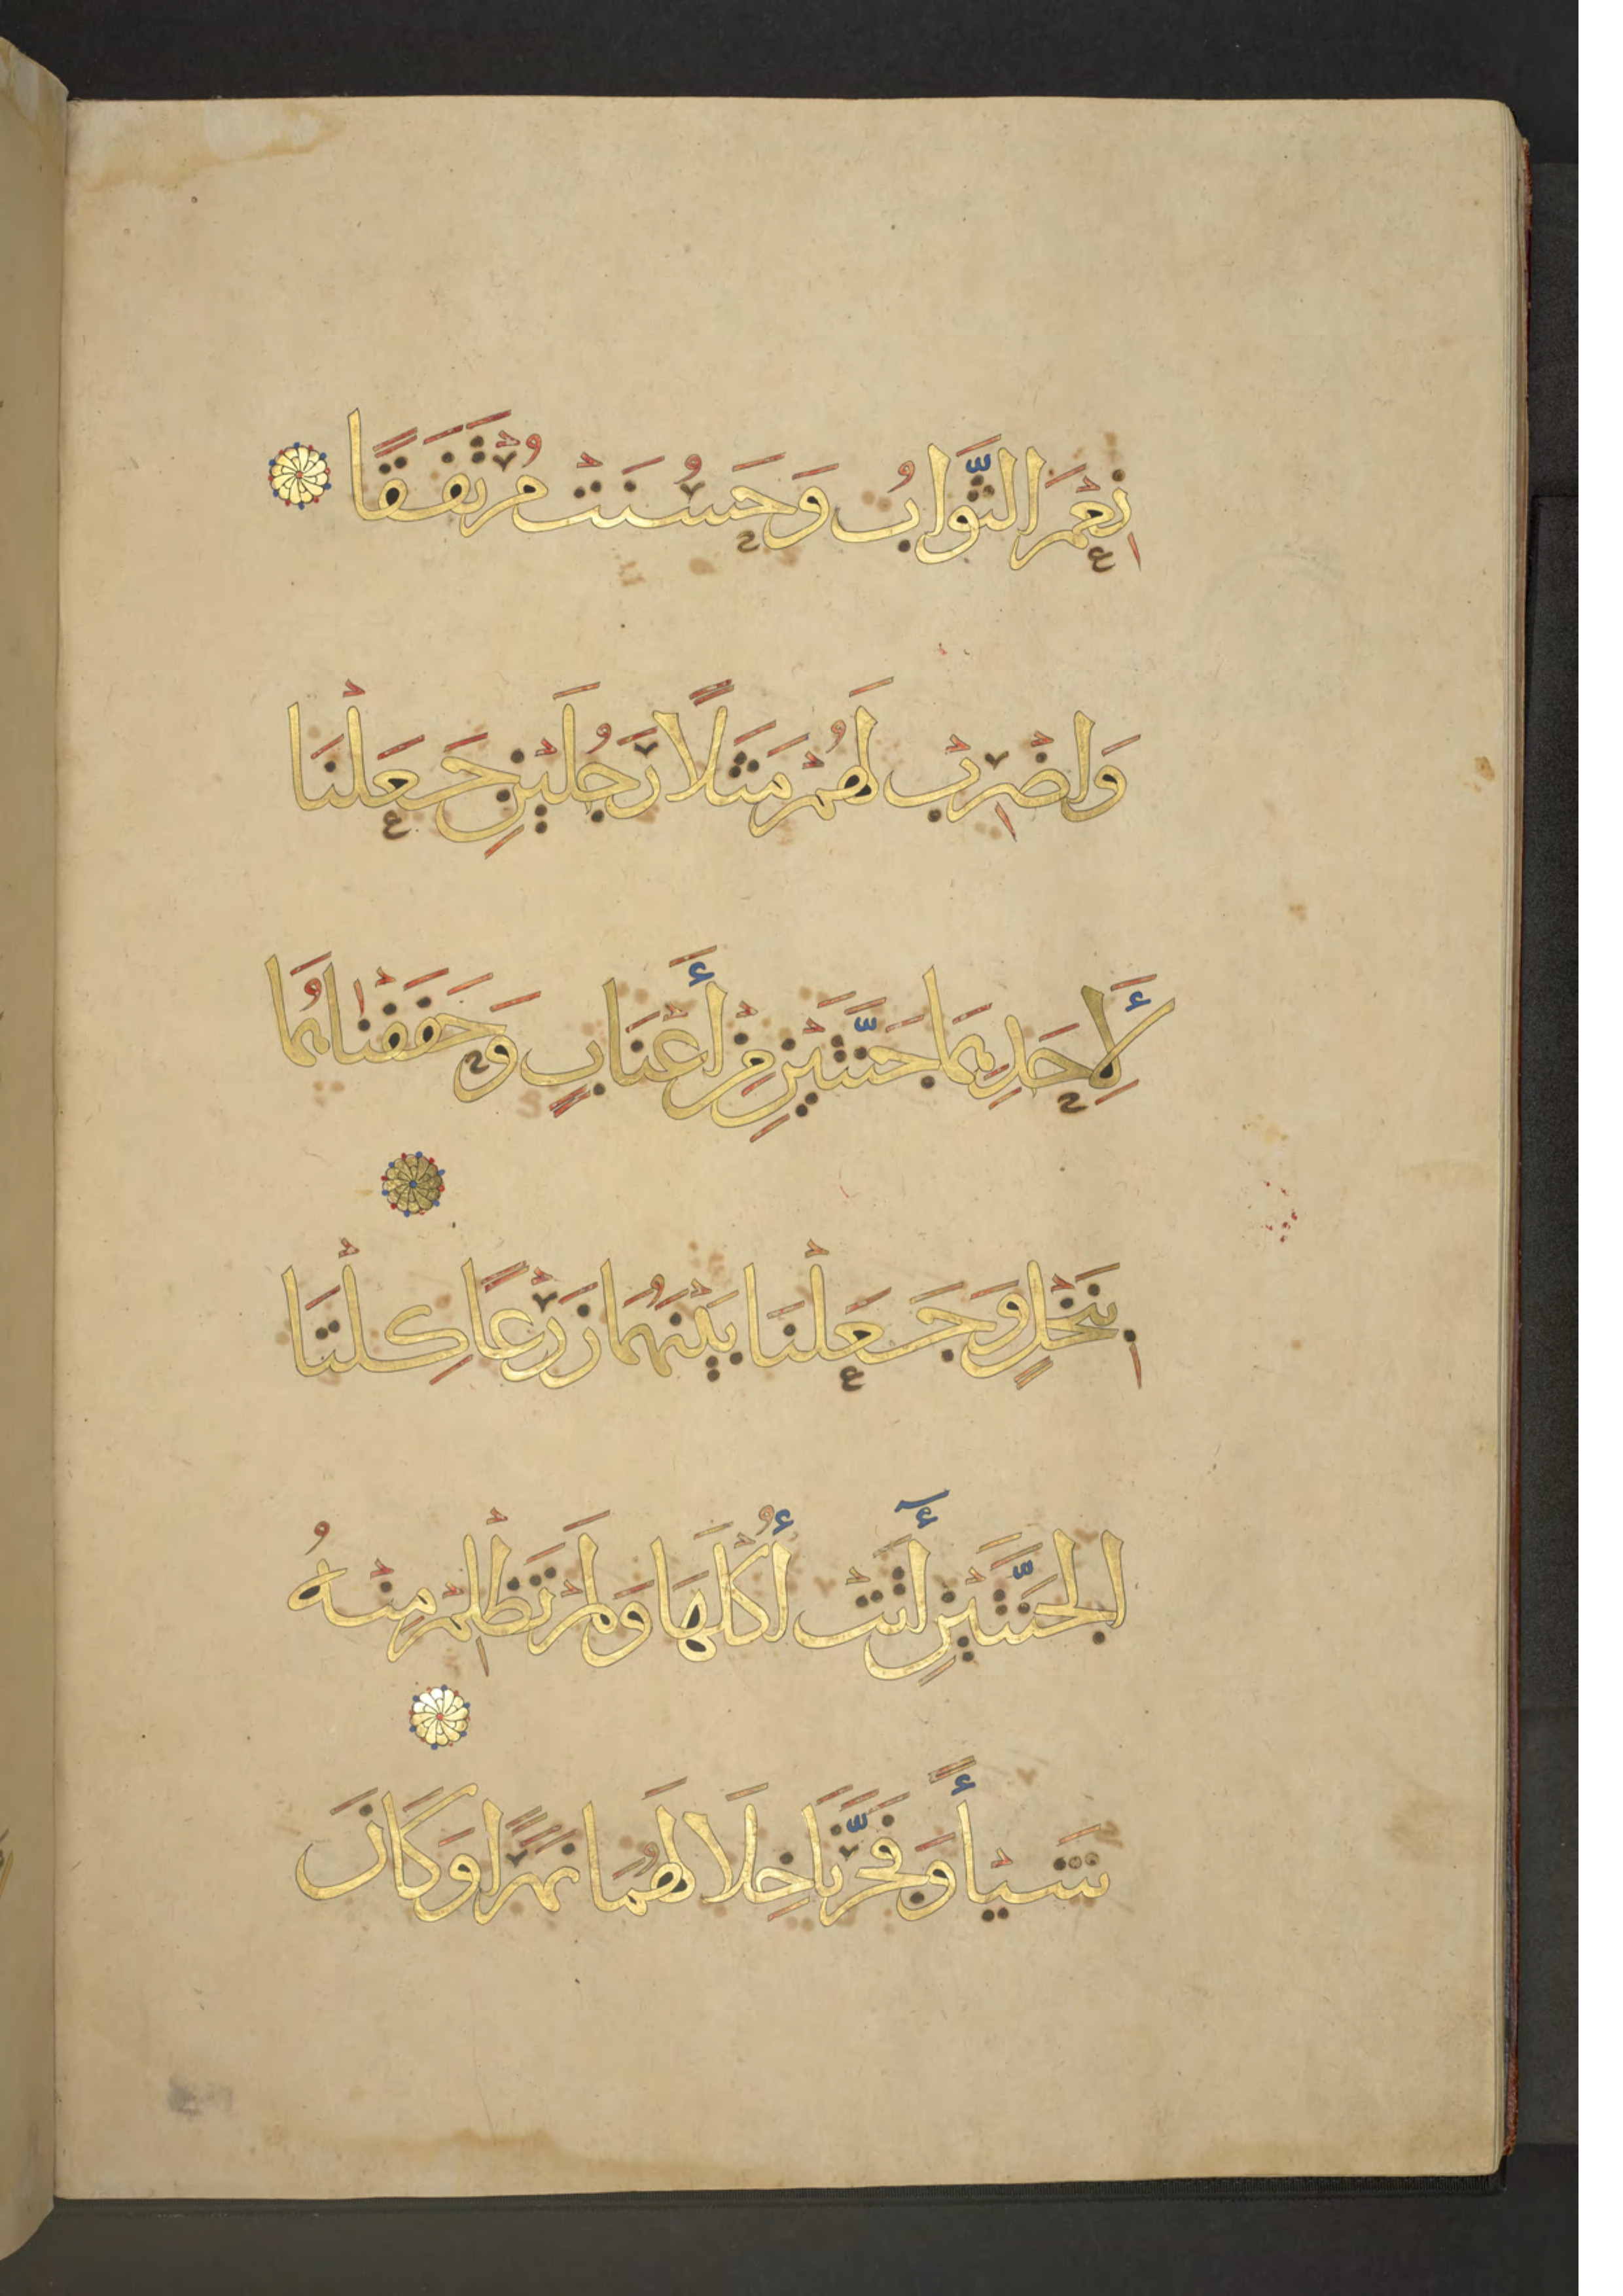 نِعْمَ الثَّوَابُ وَحَسُنَتْ مُرْتَفَقًا
وَاضْرِبْ لَهُمْ مَثَلًا رَجُلَيْنِ جَعَلْنَا
لِأَحَدِهِمَا جَنَّتَيْنِ مِنْ أَعْنَابٍ وَحَفَفْنَاهُمَا
بِنَخْلٍ وَجَعَلْنَا بَيْنَهُمَا زَرْعًا كِلْتَا
الْجَنَّتَيْنِ أٓتَتْ أُكْلَهَا وَلَمْ تَظْلِمْ مِنْهُ
شَيْأً وَفَجَّرْنَا خِلَالَهُمَا نَهَرًا وَكَانَ